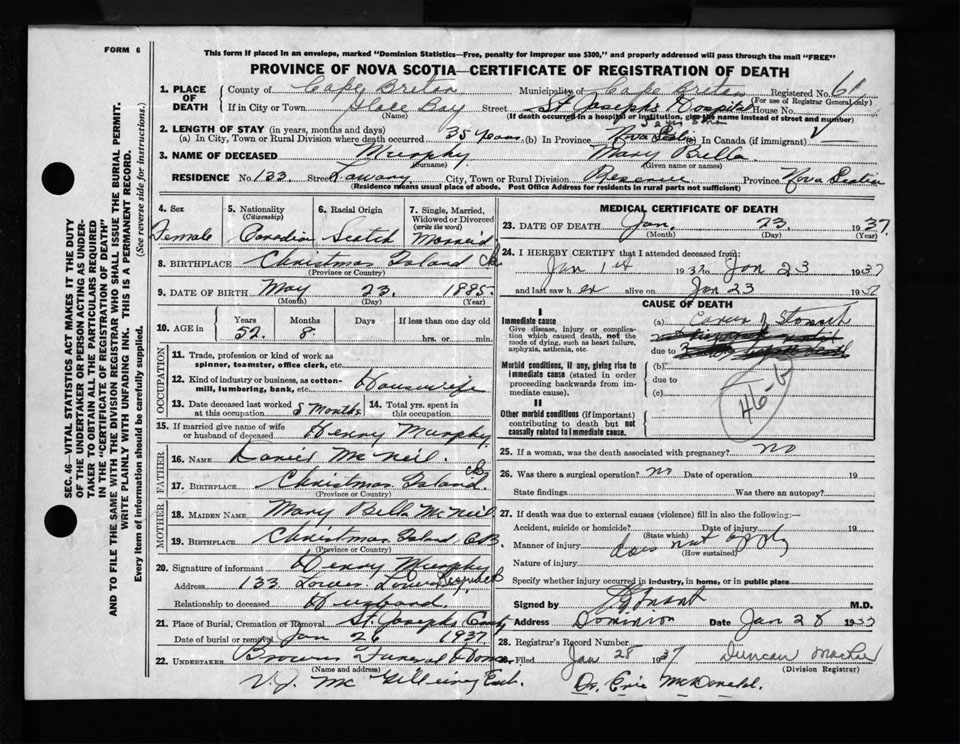 FORM 6
This form if placed in an envelope, marked "Dominion Statistics—Free, penalty for improper use $300," and properly addressed will pass through the mail "FREE"
PROVINCE OF NOVA SCOTIA—CERTIFICATE OF REGISTRATION OF DEATH
1. PLACE OF DEATH
County of Cape Breton Municipality of Cape Breton Registered No. 6
(For use of Registrar General only)
If in City or Town Glace Bay Street St Joseph's Hospital House No.
(Name) (If death occurred in a hospital or institution, give the name instead of street and number)
2. LENGTH OF STAY (in years, months and days)
(a) In City, Town or Rural Division where death occurred 35 years (b) In Province Nova Scotia (c) In Canada (if immigrant) —
3. NAME OF DECEASED Murphy Mary Bella
(Surname) (Given name or names)
RESIDENCE No. 133 Street City, Town or Rural Division Reserve Province Nova Scotia
(Residence means usual place of abode. Post Office Address for residents in rural parts not sufficient)
4. Sex
Female
5. Nationality
(Citizenship)
Canadian
6. Racial Origin
Scotch
7. Single, Married, Widowed or Divorced
(write the word)
Married
8. BIRTHPLACE Christmas Island CB
(Province or Country)
9. DATE OF BIRTH May 23. 1885.
(Month) (Day) (Year)
10. AGE in Years Months Days If less than one day old
52. 8. hrs. or min.
OCCUPATION
11. Trade, profession or kind of work as spinner, teamster, office clerk, etc.
12. Kind of industry or business, as cotton-mill, lumbering, bank, etc. Housewife
13. Date deceased last worked at this occupation 5 Months 14. Total yrs. spent in this occupation
15. If married give name of wife or husband of deceased Henry Murphy
FATHER
16. Name Daniel McNeil
17. Birthplace Christmas Island. CB
(Province or Country)
MOTHER
18. Maiden Name Mary Bella McNeil
19. Birthplace Christmas Island CB.
(Province or Country)
20. Signature of informant Henry Murphy
Address 133 Lower
Relationship to deceased Husband.
21. Place of Burial, Cremation or Removal St. Josephs
Date of burial or removal Jan 26 1937
22. UNDERTAKER Browns Funeral Home
(Name and address)
V.J. Mc
MEDICAL CERTIFICATE OF DEATH
23. DATE OF DEATH Jan. 23. 1937.
(Month) (Day) (Year)
24. I HEREBY CERTIFY that I attended deceased from:
Jan 1st 1937 to Jan 23 1937
and last saw her alive on Jan 23 1937
CAUSE OF DEATH
I
Immediate cause
Give disease, injury or complication which caused death, not the mode of dying, such as heart failure, asphyxia, asthenia, etc.
(a) Cancer of Stomach
due to
Morbid conditions, if any, giving rise to immediate cause (stated in order proceeding backwards from immediate cause).
(b)
due to
(c)
46-b
II
Other morbid conditions (if important) contributing to death but not causally related to immediate cause.
25. If a woman, was the death associated with pregnancy? no
26. Was there a surgical operation? no Date of operation 19
State findings Was there an autopsy?
27. If death was due to external causes (violence) fill in also the following:—
Accident, suicide or homicide? Date of injury 19
(State which)
Manner of injury does not apply
(How sustained)
Nature of injury
Specify whether injury occurred in industry, in home, or in public place
Signed by M.D.
Address Dominion Date Jan 28 1937
28. Registrar's Record Number
29. Filed Jan 28 1937 Duncan
(Division Registrar)
Dr. Eric McDonald.
SEC. 46—VITAL STATISTICS ACT MAKES IT THE DUTY
OF THE UNDERTAKER OR PERSON ACTING AS UNDERTAKER TO OBTAIN ALL THE PARTICULARS REQUIRED
IN THE "CERTIFICATE OF REGISTRATION OF DEATH"
AND TO FILE THE SAME WITH THE DIVISION REGISTRAR WHO SHALL ISSUE THE BURIAL PERMIT.
WRITE PLAINLY WITH UNFADING INK. THIS IS A PERMANENT RECORD.
Every item of information should be carefully supplied. (See reverse side for instructions.)